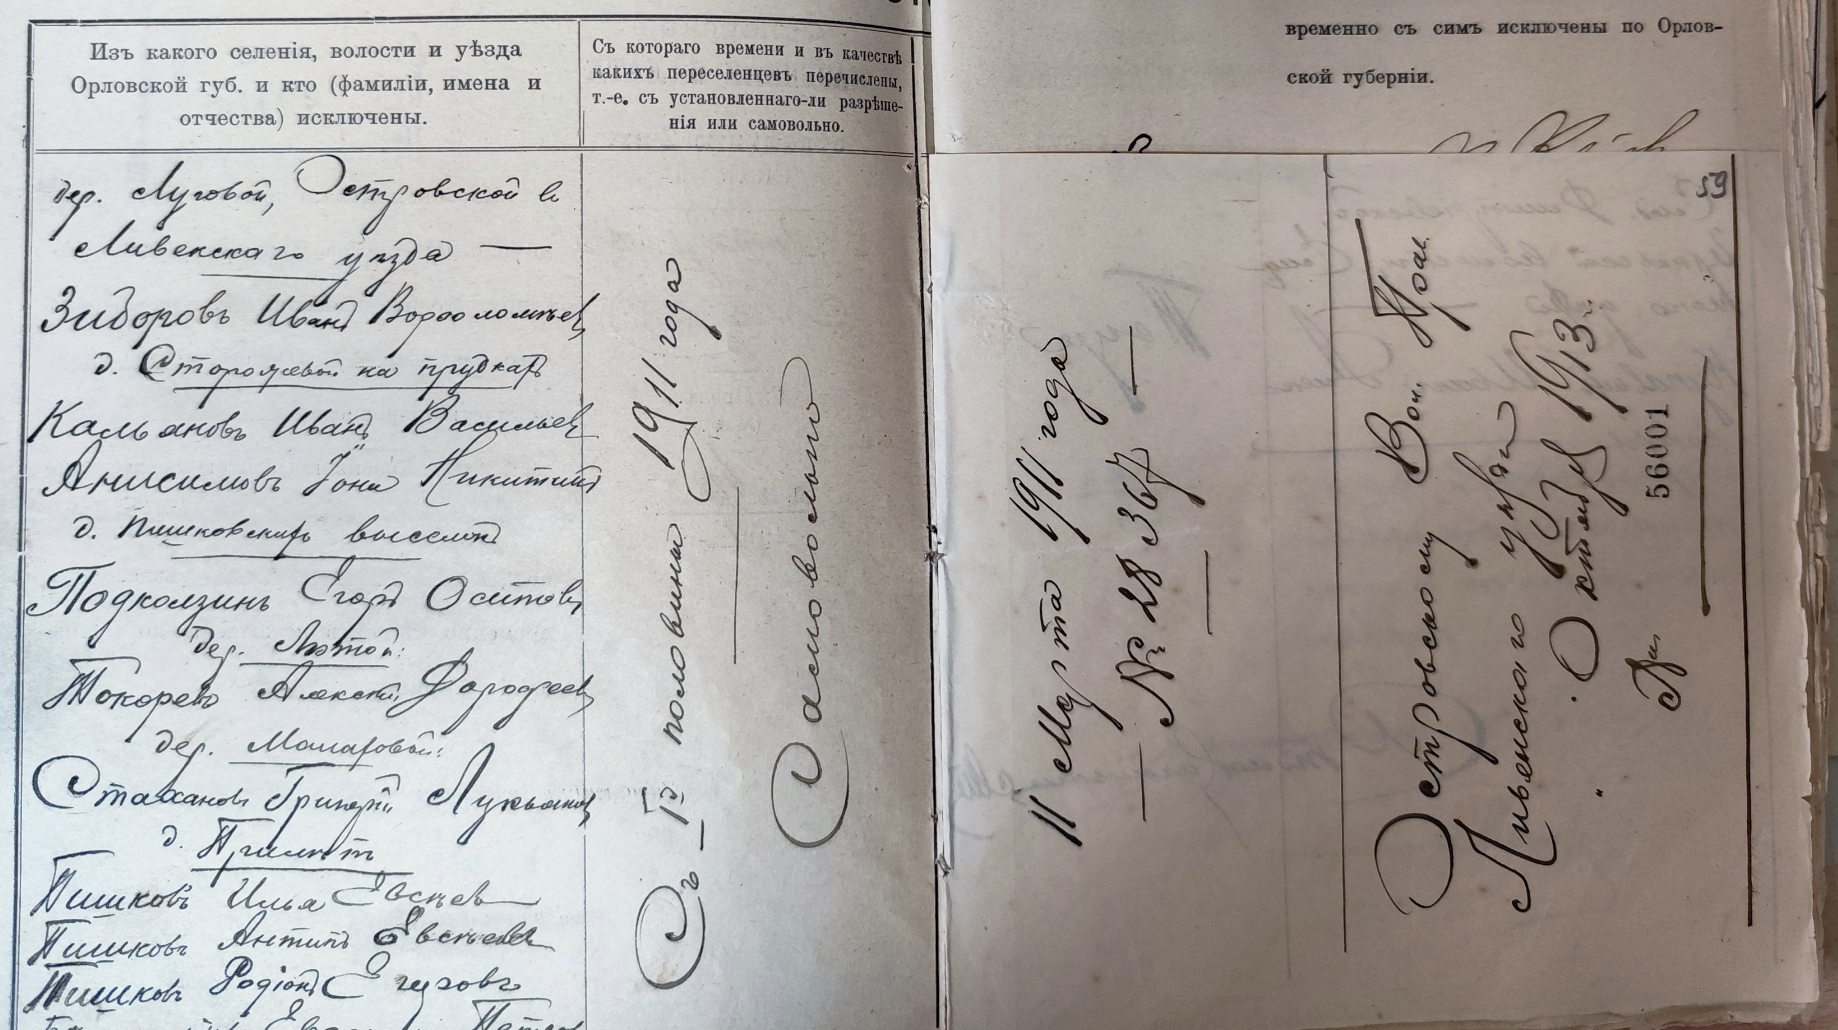 Изъ какого селенія, волости и уѣзда
Орловской губ. и кто (фамиліи, имена и
отчества) исключены.
Съ котораго времени и въ качествѣ
какихъ переселенцевъ перечислены,
т.-е. съ установленнаго-ли разрѣше-
нія или самовольно.
дер. Луговой, Островской в
Ливенскаго уѣзда —
Зиборовъ Иванъ
д. Сторожевой на прудкахъ
Кальяновъ Иванъ Васильев
Анисимовъ Іона Никитинъ
д. Пишковскихъ выселокъ
Подколзинъ Егоръ Осипов
дер. Лютой:
Токоревъ Алексѣй Дорофеев
дер.
Стахановъ Григорій Лукьянов
д.
Пишковъ Илья Евсѣев
Пишковъ Антипъ Евсѣевъ
Пишковъ Родіонъ
Съ 1й половины 1911 года
Самовольно
временно съ симъ исключены по Орлов-
ской губерніи.
59
11 Марта 1911 года
— № 28367 —
Островскому Вол. Прав.
Ливенскаго уѣзда
Октября 1913 г.
56001